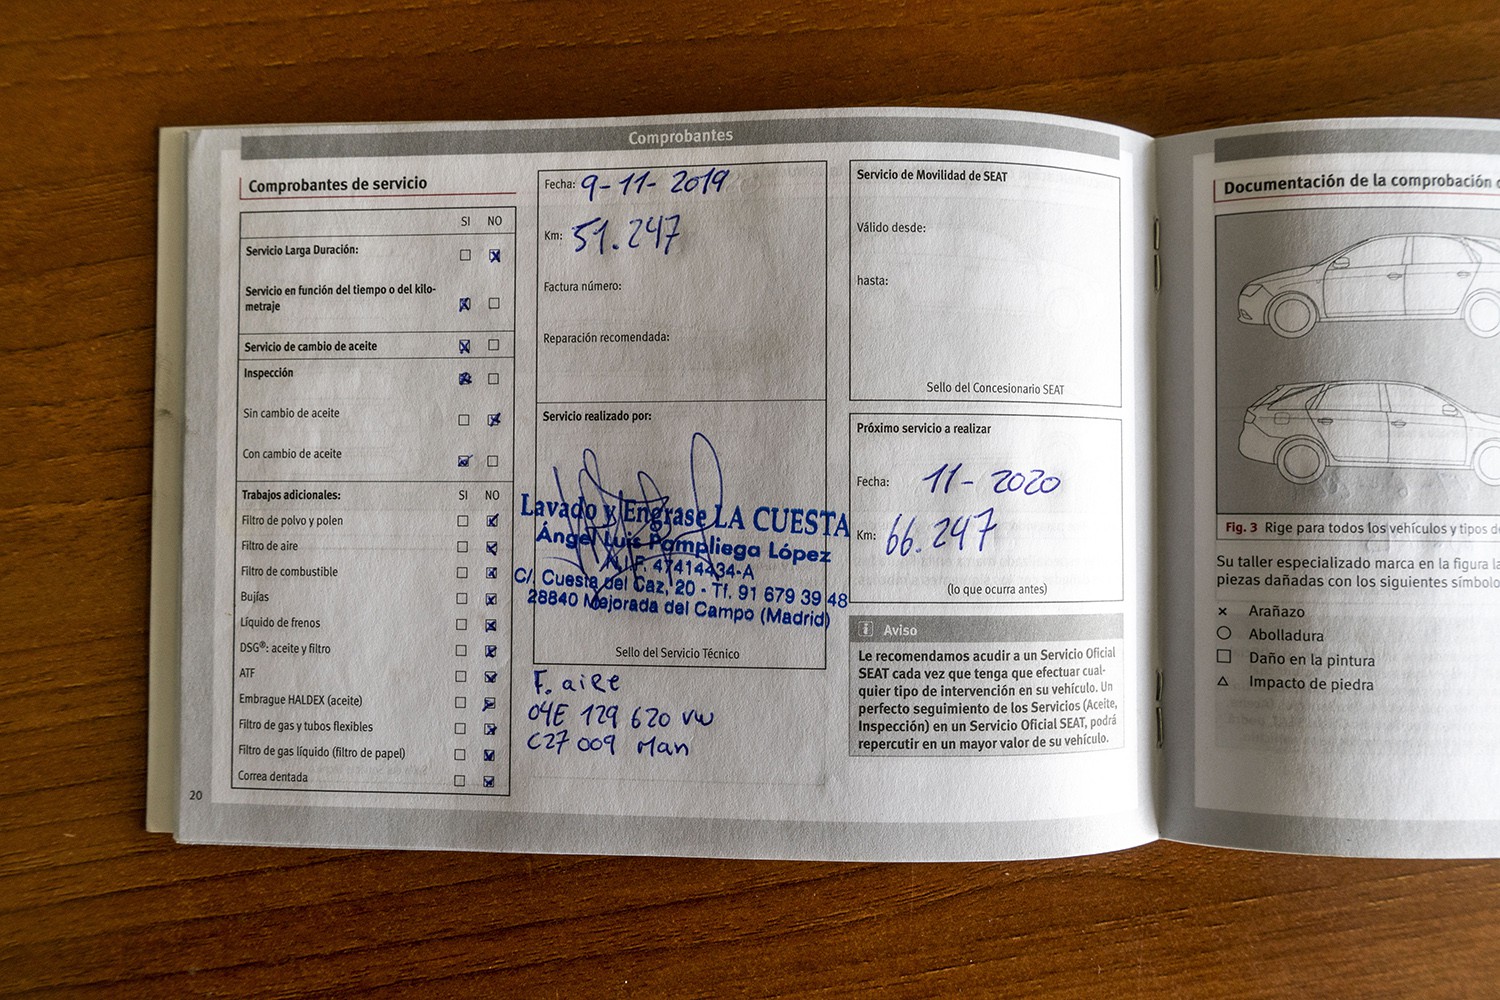 Comprobantes
Comprobantes de servicio
SI NO
Servicio Larga Duración:
Servicio en función del tiempo o del kilo-
metraje
Servicio de cambio de aceite
Inspección
Sin cambio de aceite
Con cambio de aceite
Trabajos adicionales: SI NO
Filtro de polvo y polen
Filtro de aire
Filtro de combustible
Bujías
Líquido de frenos
DSG®: aceite y filtro
ATF
Embrague HALDEX (aceite)
Filtro de gas y tubos flexibles
Filtro de gas líquido (filtro de papel)
Correa dentada
20
Fecha: 9-11-2019
Km: 51.247
Factura número:
Reparación recomendada:
Servicio realizado por:
Lavado y Engrase LA CUESTA
Ángel Luis Pampliega López
N.I.F. 47414434-A
C/. Cuesta del Caz, 20 - Tf. 91 679 39 48
28840 Mejorada del Campo (Madrid)
Sello del Servicio Técnico
F. aire
04E 129 620 VW
C27 009 Man
Servicio de Movilidad de SEAT
Válido desde:
hasta:
Sello del Concesionario SEAT
Próximo servicio a realizar
Fecha: 11-2020
Km: 66.247
(lo que ocurra antes)
i Aviso
Le recomendamos acudir a un Servicio Oficial
SEAT cada vez que tenga que efectuar cual-
quier tipo de intervención en su vehículo. Un
perfecto seguimiento de los Servicios (Aceite,
Inspección) en un Servicio Oficial SEAT, podrá
repercutir en un mayor valor de su vehículo.
Documentación de la comprobación
Fig. 3 Rige para todos los vehículos y tipos
Su taller especializado marca en la figura
piezas dañadas con los siguientes símbolo
Arañazo
Abolladura
Daño en la pintura
Impacto de piedra